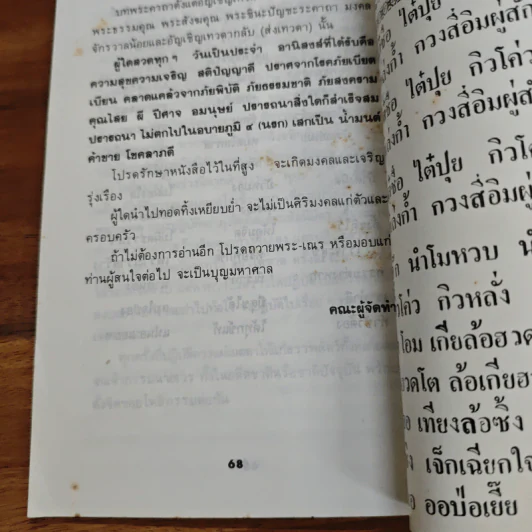 บทพระคาถาตั้งแต่อัญเชิญ
พระธรรมคุณ พระสังฆคุณ พระชินะปัญชะระคาถา มงคล
จักรวาลน้อยและอัญเชิญเทวดากลับ (ส่งเทวดา) นั้น
ผู้ใดสวดทุก ๆ วันเป็นประจำ อานิสงส์ที่ได้รับคือ
ความสุขความเจริญ สติปัญญาดี ปราศจากโรคภัยเบียด
เบียน คลาดแคล้วจากภัยพิบัติ ภัยธรรมชาติ ภัยสงคราม
คุณไสย ผี ปีศาจ อมนุษย์ ปรารถนาสิ่งใดก็สำเร็จสม
ปรารถนา ไม่ตกไปในอบายภูมิ ๔ (นรก) เสกเป็น น้ำมนต์
ค้าขาย โชคลาภดี
โปรดรักษาหนังสือไว้ในที่สูง จะเกิดมงคลและเจริญ
รุ่งเรือง
ผู้ใดนำไปทอดทิ้งเหยียบย่ำ จะไม่เป็นศิริมงคลแก่ตัวและ
ครอบครัว
ถ้าไม่ต้องการอ่านอีก โปรดถวายพระ-เณร หรือมอบแก่
ท่านผู้สนใจต่อไป จะเป็นบุญมหาศาล
คณะผู้จัดทำ
68
ไต๋ปุย กิวโค่ว
กวงสี่อิมผู่สัก
ไต๋ปุย กิวโค่ว
กวงสี่อิมผู่สัก
ไต๋ปุย กิวโค่
กวงสี่อิมผู่ส
นำโมหวบ
โค่ว กิวหลั่ง
โอม เกียล้อฮวด
ล้อเกียฮ
เทียงล้อซิ้ง
เจ็กเฉียกใจ
ออป่อเยี๊ย